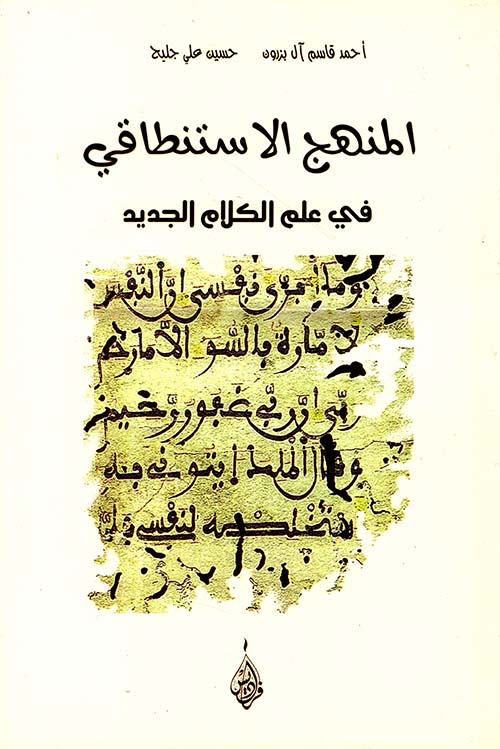 أحمد قاسم آل بزرون حسين علي جليح
المنهج الاستنطاقي
في علم الكلام الجديد
وما ابرى نفسى ان النفس
لامارة بالسو الا ما رحم
ربى ان ربى غفور رحيم
وقال الملك ايتونى به
استخلصه لنفسى فلما
فراديس